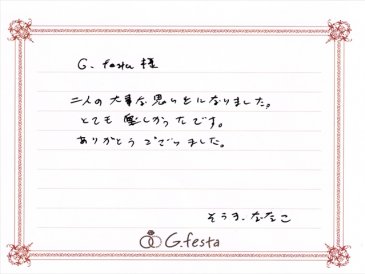 G. festa 様
二人の大事な思い出になりました。
とても楽しかったです。
ありがとうございました。
そうす、ななこ
G.festa